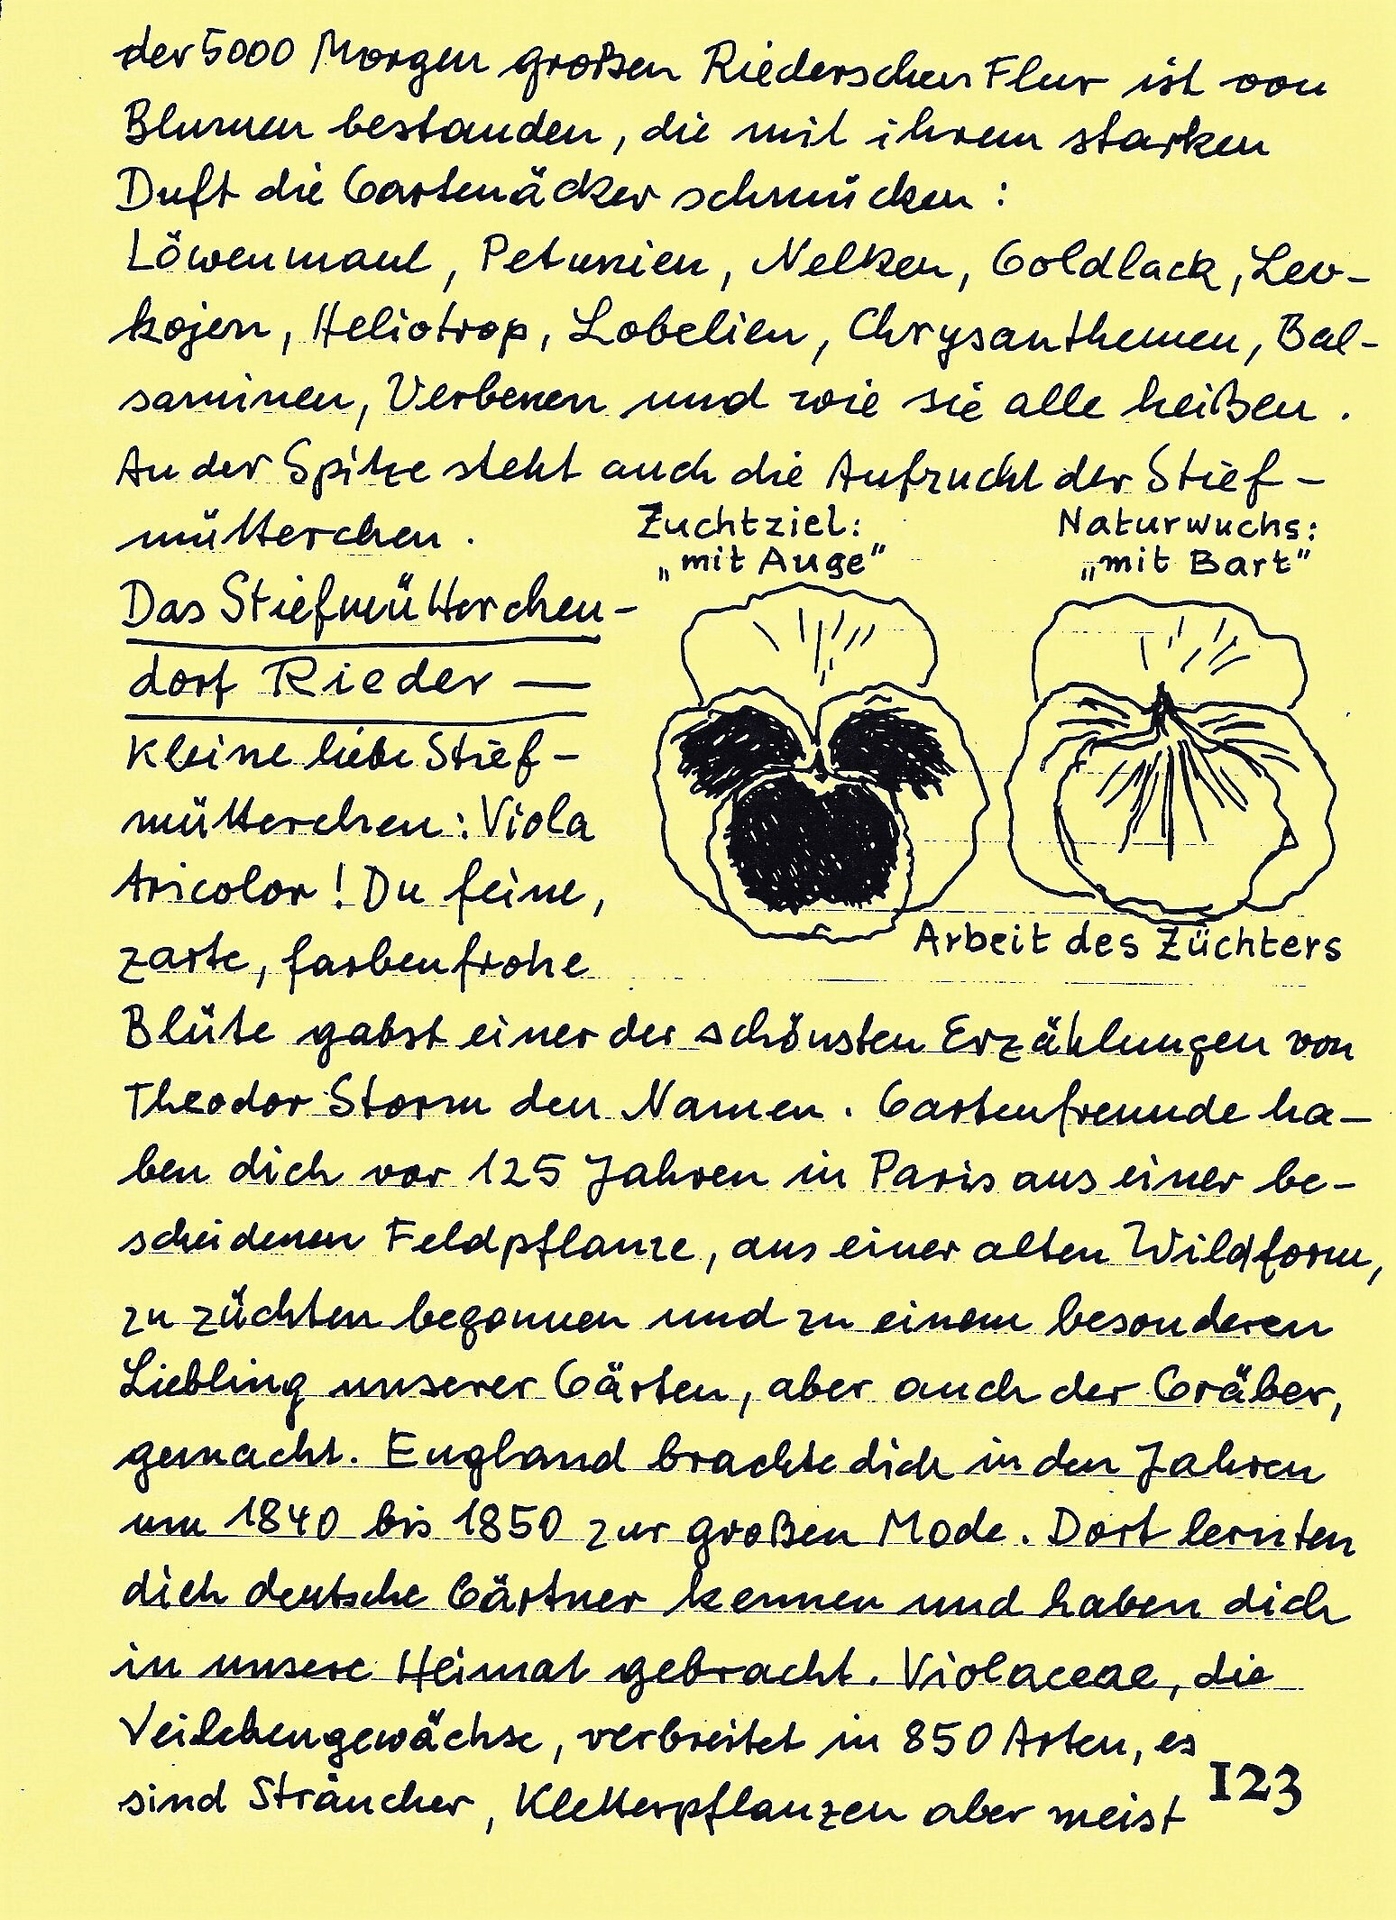 der 5000 Morgen großen Riederschen Flur ist von
Blumen bestanden, die mit ihrem starken
Duft die Gartenäcker schmücken:
Löwenmaul, Petunien, Nelken, Goldlack, Lev-
kojen, Heliotrop, Lobelien, Chrysanthemen, Bal-
saminen, Verbenen und wie sie alle heißen.
An der Spitze steht auch die Aufzucht der Stief-
mütterchen.
Zuchtziel:
„mit Auge"
Naturwuchs:
„mit Bart"
Das Stiefmütterchen-
dorf Rieder —
Kleine liebe Stief-
mütterchen: Viola
tricolor! Du feine,
zarte, farbenfrohe
Arbeit des Züchters
Blüte gabst einer der schönsten Erzählungen von
Theodor Storm den Namen. Gartenfreunde ha-
ben dich vor 125 Jahren in Paris aus einer be-
scheidenen Feldpflanze, aus einer alten Wildform,
zu züchten begonnen und zu einem besonderen
Liebling unserer Gärten, aber auch der Gräber,
gemacht. England brachte dich in den Jahren
um 1840 bis 1850 zur großen Mode. Dort lernten
dich deutsche Gärtner kennen und haben dich
in unsere Heimat gebracht. Violaceae, die
Veilchengewächse, verbreitet in 850 Arten, es
sind Sträucher, Kletterpflanzen aber meist
123